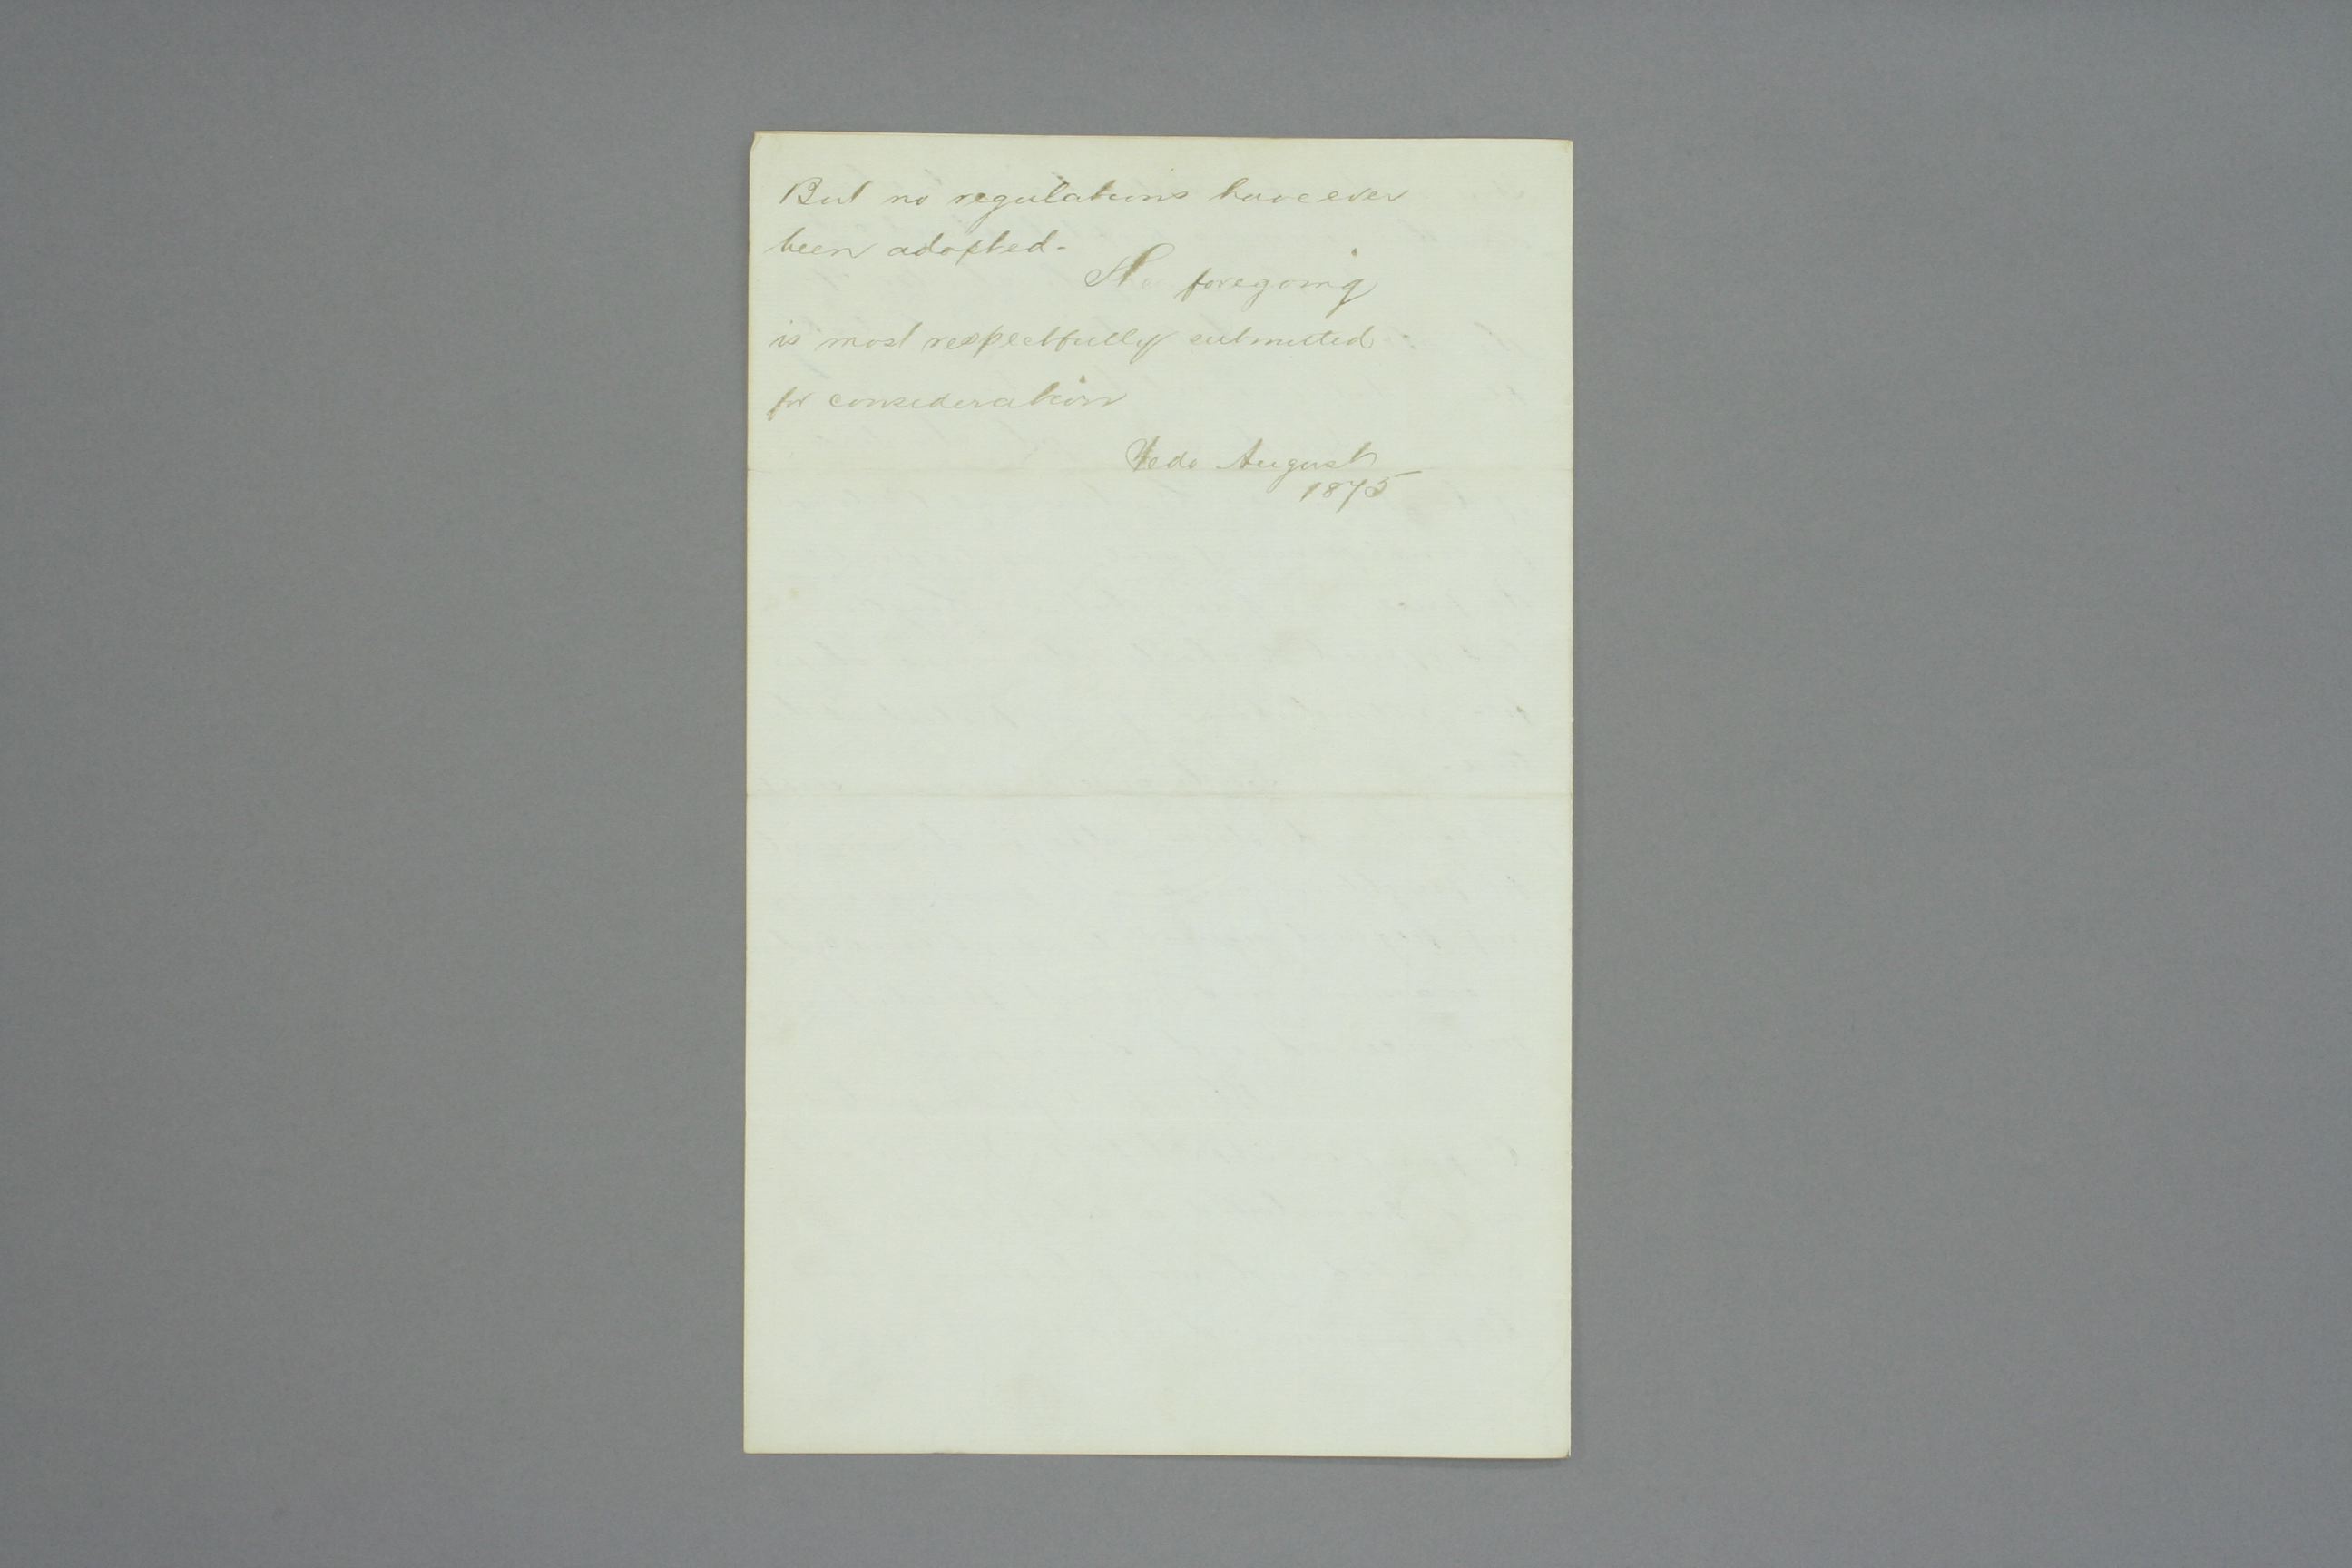 But no regulations have ever
been adopted-
The foregoing
is most respectfully submitted
for consideration
Yedo August
1875